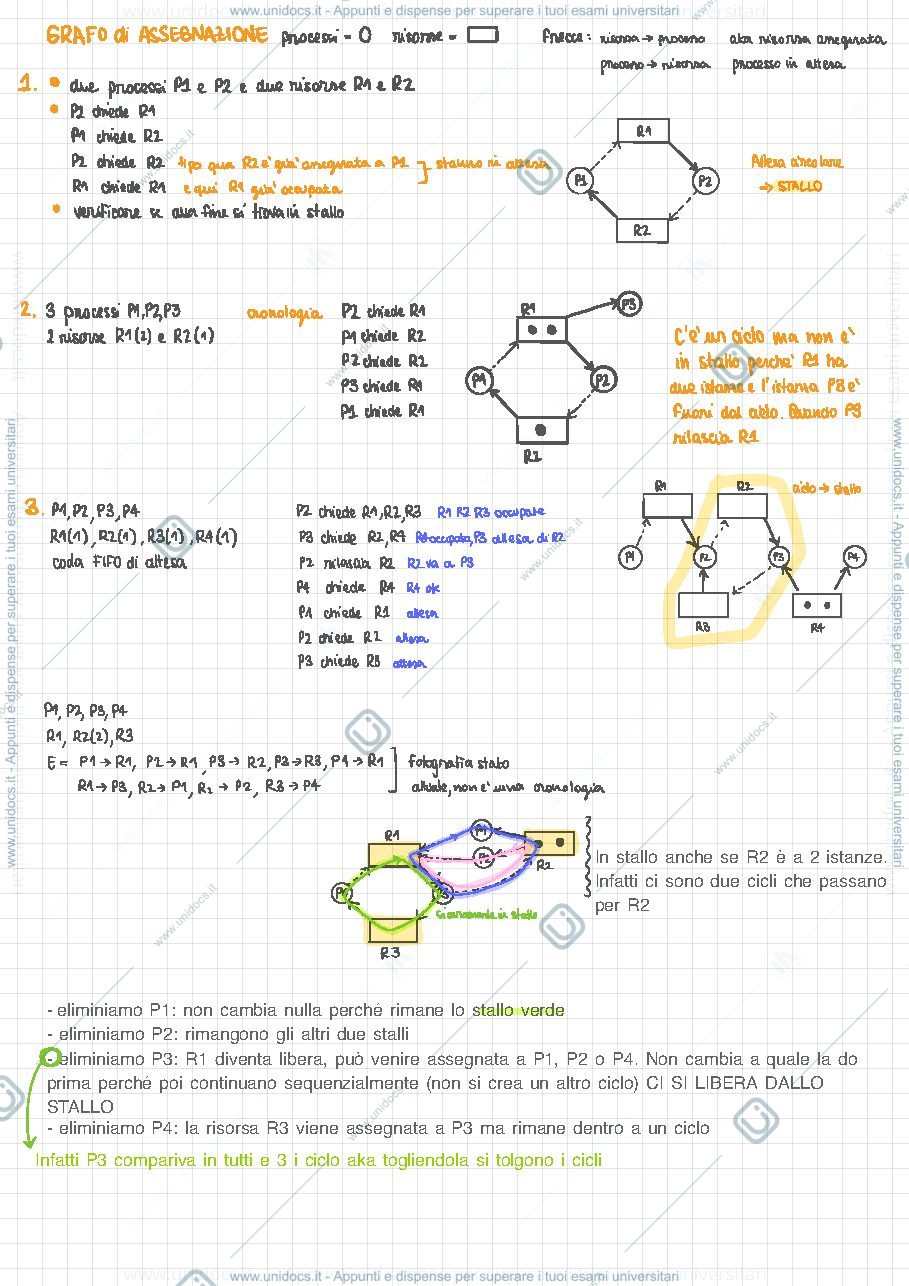 www.unidocs.it - Appunti e dispense per superare i tuoi esami universitari
GRAFO di ASSEGNAZIONE processi = O risorse = ▭ frecce: risorsa → processo aka risorsa assegnata
processo → risorsa processo in attesa
1. • due processi P1 e P2 e due risorse R1 e R2
• P2 chiede R1
P1 chiede R2
P2 chiede R2 tipo qua R2 è già assegnata a P1 } stanno in attesa
R1 chiede R1 e qui R1 già occupata
• verificare se alla fine si trova in stallo
R1
P1
P2
R2
Attesa circolare
→ STALLO
2. 3 processi P1,P2,P3
2 risorse R1(2) e R2(1)
cronologia P2 chiede R1
P1 chiede R2
P2 chiede R2
P3 chiede R1
P1 chiede R1
R1
P3
P1
P2
R2
C'è un ciclo ma non è
in stallo perchè R1 ha
due istanze e l'istanza P3 è
fuori dal ciclo. Quando P3
rilascia R1
3. P1,P2,P3,P4
R1(1),R2(1),R3(1),R4(1)
coda FIFO di attesa
P2 chiede R1,R2,R3 R1 R2 R3 occupate
P3 chiede R2,R4 R4 occupata, P3 attesa di R2
P2 rilascia R2 R2 va a P3
P4 chiede R4 R4 ok
P1 chiede R1 attesa
P2 chiede R2 attesa
P3 chiede R3 attesa
R1
R2
ciclo → stallo
P1
P2
P3
P4
R3
R4
P1, P2, P3, P4
R1, R2(2), R3
E = P1→R1, P2→R1, P3→R2, P3→R3, P4→R1
R1→P3, R2→P1, R2→P2, R3→P4
fotografia stato
attuale, non è una cronologia
R1
P1
R2
R3
sicuramente in stallo
In stallo anche se R2 è a 2 istanze.
Infatti ci sono due cicli che passano
per R2
- eliminiamo P1: non cambia nulla perché rimane lo stallo verde
- eliminiamo P2: rimangono gli altri due stalli
- eliminiamo P3: R1 diventa libera, può venire assegnata a P1, P2 o P4. Non cambia a quale la do
prima perché poi continuano sequenzialmente (non si crea un altro ciclo) CI SI LIBERA DALLO
STALLO
- eliminiamo P4: la risorsa R3 viene assegnata a P3 ma rimane dentro a un ciclo
Infatti P3 compariva in tutti e 3 i ciclo aka togliendola si tolgono i cicli
www.unidocs.it - Appunti e dispense per superare i tuoi esami universitari